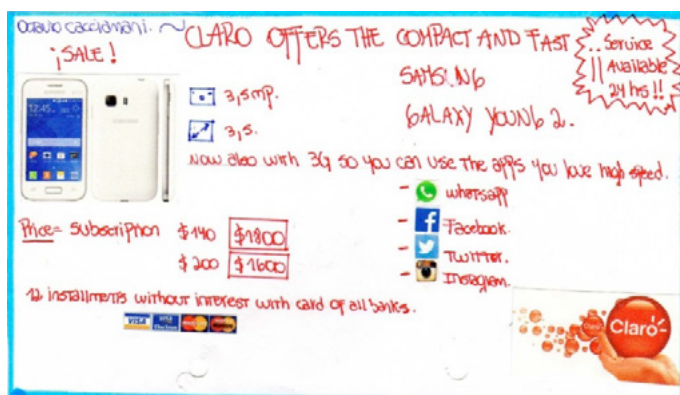 Octavio Cacciamani.
¡SALE!
CLARO OFFERS THE COMPACT AND FAST
SAMSUNG
GALAXY YOUNG 2.
Service
Available
24 hrs !!
12:45
3,5mp.
3,5.
Now also with 3G so you can use the apps you love high speed.
- whatsapp
- Facebook.
- Twitter.
- Instagram.
Price= Subscription $140 $1800
$200 $1600
12 installments without interest with card of all banks.
VISA VISA
Claro